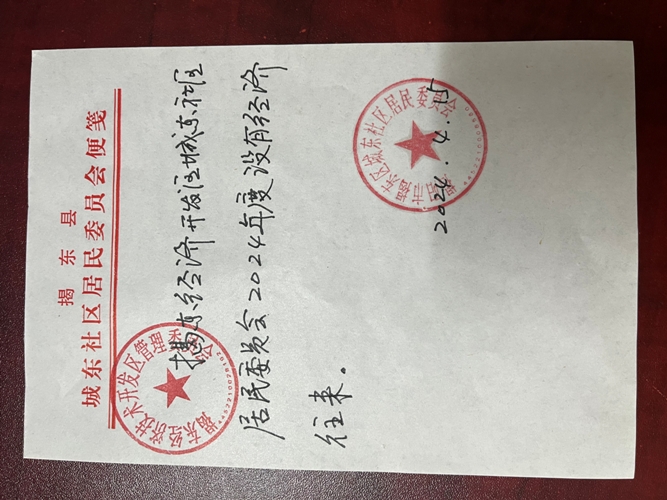 揭东县
城东社区居民委员会便笺
揭东经济开发区城东社区
居民委员会2024年度没有经济
往来。
揭阳市揭东区城东社区居民委员会
2024.4.5